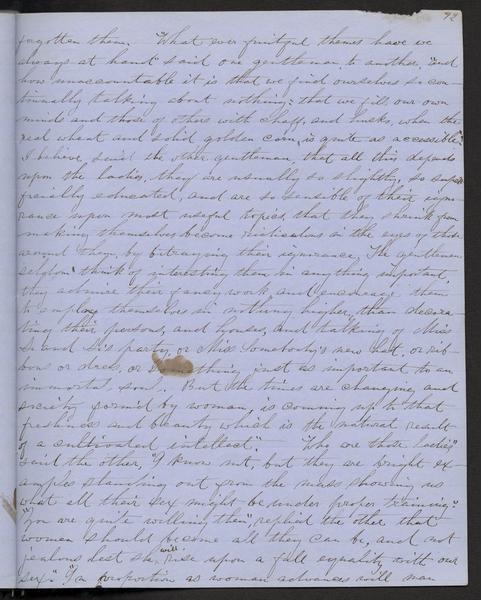 92
forgotten them. "What ever fruitful themes have we
always at hand" said one gentleman to another, "and
how unaccountable it is that we find ourselves so con-
tinually talking about nothing: that we fill our own
minds and those of others with chaff, and husks, when the
real wheat and solid golden corn, is quite as accessible."
I believe, said the other gentleman, that all this depends
upon the ladies, they are usually so slightly, so super
ficially educated, and are so sensible of their igno-
rance upon most useful topics, that they shrink from
making themselves become ridiculous in the eyes of those
around them, by betraying their ignorance, The gentlemen
seldom think of interesting them in any thing important,
they admire their fancy work and encourage them
to employ themselves in nothing higher, than decora-
ting their persons, and houses, and talking of Miss
and party, or Miss Somebody's new hat, or rib-
bons or dress, or something just as important to an
immortal soul. But the times are changing and
society form'd by woman, is coming up to that
freshness and beauty which is the natural result
of a cultivated intellect". "Who are those ladies"
said the other, "I know not, but they are bright ex-
amples standing out from the mass showing us
what all their sex might be under proper training".
"you are quite willing then", replied the other that
women should become all they can be, and not
jealous lest she will rise upon a full equality with our
sex". "In proportion as woman advances will man